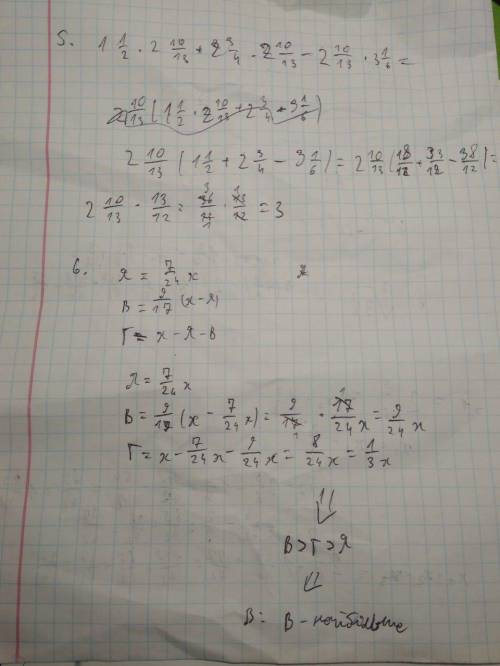 5. 1 1/2 · 2 10/13 + 2 3/4 · 2 10/13 - 2 10/13 · 3 1/6 =
2 10/13 (1 1/2 + 2 3/4 - 3 1/6) = 2 10/13 (18/12 + 33/12 - 38/12) =
2 10/13 · 13/12 = 36/13 · 13/12 = 3
6. Я = 7/24 x
В = 9/17 (x - Я)
Г = x - Я - В
Я = 7/24 x
В = 9/17 (x - 7/24 x) = 9/17 · 17/24 x = 9/24 x
Г = x - 7/24 x - 9/24 x = 8/24 x = 1/3 x
⇓
В > Г > Я
⇓
В: В - найбільше